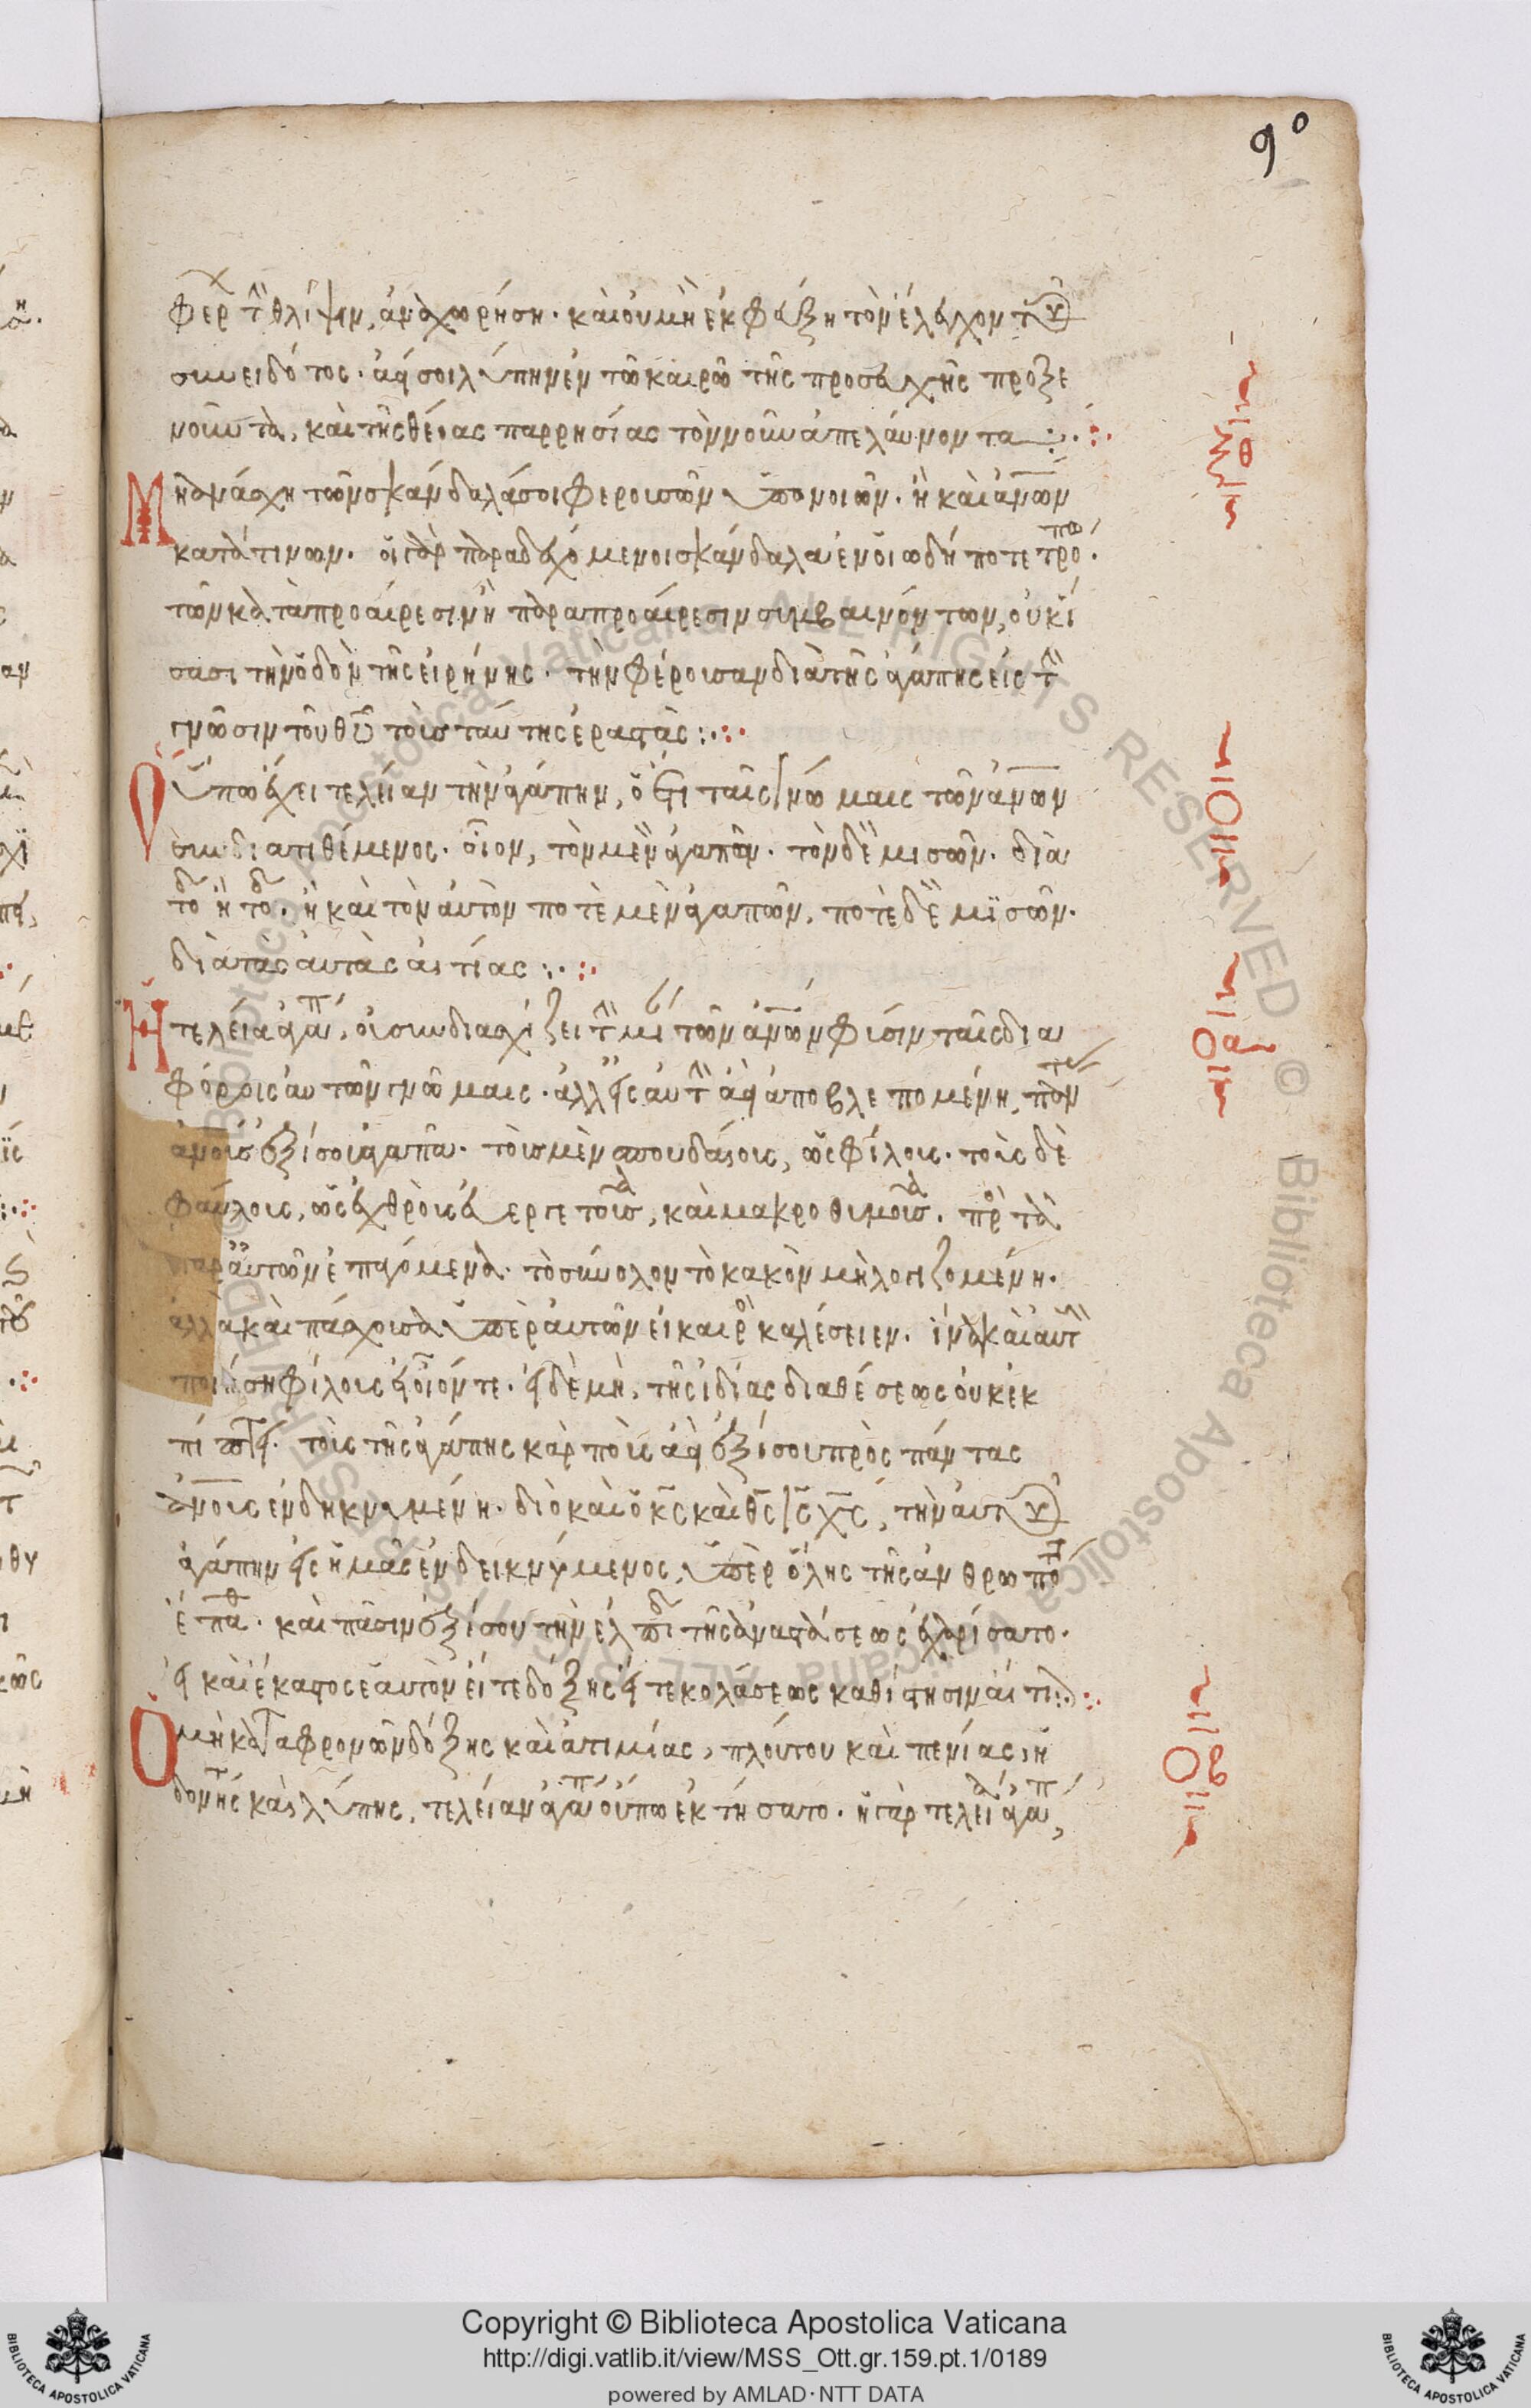 90
φερ τ θλίψιν, ἀναχωρήση. καὶ οὐ μὴ ἐκφεύξη τὸν ἔλεγχον τοῦ
συνειδότος. ἀεί σοι λύπην ἐν τῶ καιρῶ τῆς προσευχῆς προξε
νοῦντα, καὶ τῆς θείας παρρησίας τὸν νοῦν ἀπελαύνοντα :·
Μὴ ἀνάσχη τῶν σκάνδαλά σοι φερουσῶν ὑπονοιῶν. ἢ καὶ ἀνων
κατά τινων. οἱ γὰρ παραδεχόμενοι σκάνδαλα ἐν οἱωδήποτε τρό.
τῶν κατὰ προαίρεσιν ἢ παρὰ προαίρεσιν συμβαινόντων, οὐκ ἴ
σασι τὴν ὁδὸν τῆς εἰρήνης. τὴν φέρουσαν διὰ τῆς ἀγάπης εἰς τ
γνῶσιν τοῦ θυ τοὺς ταύτης ἐραστὰς :·
Οὔπω ἔχει τελείαν τὴν ἀγάπην, ὁ ἔτι ταῖς γνώμαις τῶν ἀνων
συνδιατιθέμενος. οἷον, τὸν μὲν ἀγαπῶν. τὸν δὲ μισῶν. διὰ
τόδ ἢ τόδ. ἢ καὶ τὸν αὐτὸν ποτὲ μὲν ἀγαπῶν, ποτὲ δὲ μισῶν.
διὰ τὰς αὐτὰς αἰτίας :·
Ἡ τελεία ἀγάπ, οὐ συνδιασχίζει τ μί τῶν ἀνων φύσιν ταῖς δια
φόροις αὐτῶν γνώμαις. ἀλλ εἰς αὐτ ἀεὶ ἀποβλεπομένη, πάντ
ἀνους ἐξίσου ἀγαπᾶ. τοὺς μὲν σπουδαίους, ὡς φίλους. τοὺς δὲ
φαύλους, ὡς ἐχθροὺς εὐεργετοῦσα, καὶ μακροθυμοῦσα. πρ τὰ
παρ αὐτῶν ἐπαγόμενα. τὸ σύνολον τὸ κακὸν μὴ λογιζομένη.
ἀλλὰ καὶ πάσχουσα ὑπὲρ αὐτῶν εἰ καιρ καλέσειεν. ἵνα καὶ αὐτ
ποιήση φίλους εἰ οἷόν τε. εἰ δὲ μὴ, τῆς ἰδίας διαθέσεως οὐκ ἐκ
πίπτει. τοὺς τῆς ἀγάπης καρποὺς ἀεὶ ἐξίσου πρὸς πάντας
ἀνους ἐνδηκνυμένη. διὸ καὶ ὁ κς καὶ θς ις χς, τὴν αὐτοῦ
ἀγάπην εἰς ἡμᾶς ἐνδεικνύμενος, ὑπὲρ ὅλης τῆς ἀνθρωπό
ἔπαθ. καὶ πᾶσιν ἐξίσου τὴν ἐλπίδ τῆς ἀναστάσεως ἐχαρίσατο.
εἰ καὶ ἕκαστος ἑαυτὸν εἴτε δόξης εἴτε κολάσεως καθίστησιν αἴτιον :·
Ὁ μὴ καταφρονῶν δόξης καὶ ἀτιμίας, πλούτου καὶ πενίας, ἡ
δονῆς καὶ λύπης, τελείαν ἀγάπ οὔπω ἐκτήσατο. ἡ γὰρ τελεία ἀγάπ,
ο
οα
οβ
Copyright © Biblioteca Apostolica Vaticana
http://digi.vatlib.it/view/MSS_Ott.gr.159.pt.1/0189
powered by AMLAD·NTT DATA